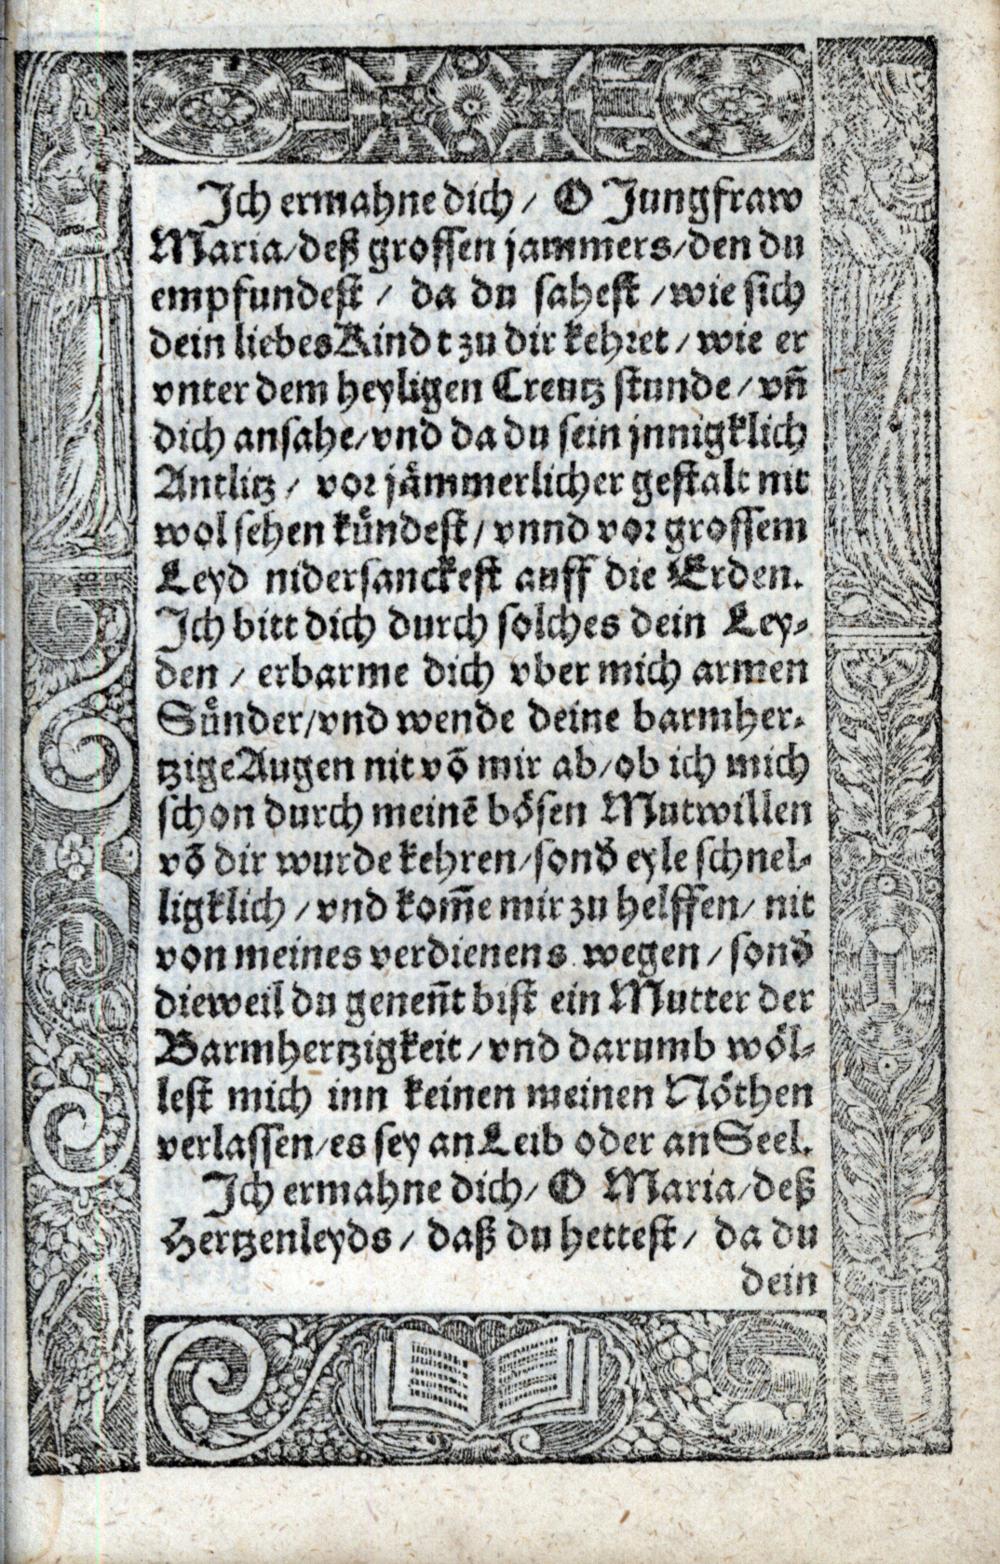 Ich ermahne dich / O Jungfraw
Maria/deß grossen jammers/den du
empfundest / da du sahest /wie sich
dein liebes Kindt zu dir kehret / wie er
vnter dem heyligen Creutz stunde / vñ
dich ansahe/vnd da du sein jnnigklich
Antlitz / vor jämmerlicher gestalt nit
wol sehen kůndest/vnnd vor grossem
Leyd nidersanckest auff die Erden.
Ich bitt dich durch solches dein Ley-
den / erbarme dich vber mich armen
Sůnder/vnd wende deine barmher-
tzige Augen nit võ mir ab/ob ich mich
schon durch meinẽ bösen Mutwillen
võ dir wurde kehren/sond̕ eyle schnel-
ligklich /vnd kom̃e mir zu helffen/ nit
von meines verdienens wegen / sond̕
dieweil du genen̄t bist ein Mutter der
Barmhertzigkeit /vnd darumb wöl-
lest mich inn keinen meinen Nöthen
verlassen/es sey an Leib oder an Seel.
Ich ermahne dich/ O Maria/deß
Hertzenleyds / daß du hettest / da du
dein